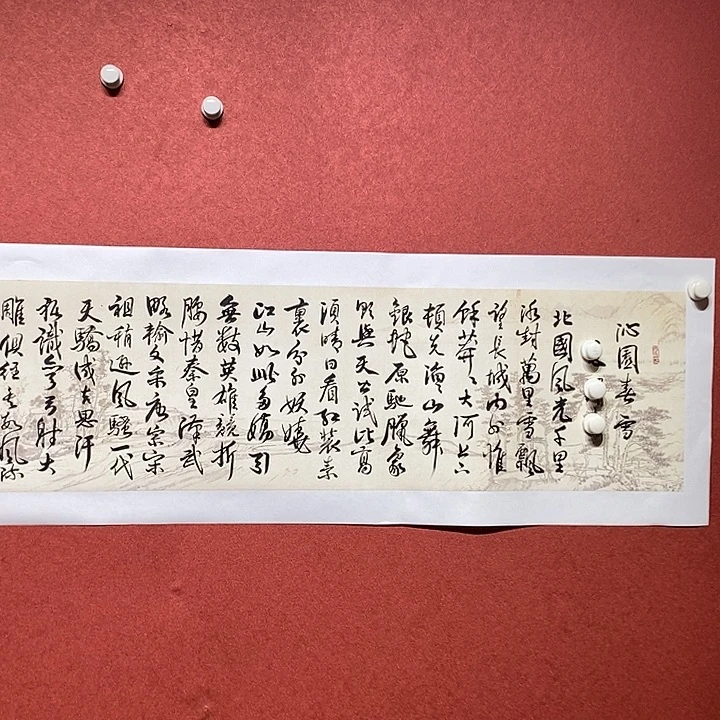 沁園春雪
北國風光千里
冰封萬里雪飄
望長城內外惟
餘莽々大河上下
頓失滔々山舞
銀蛇原馳臘象
欲與天公試比高
須晴日看紅裝素
裹分外妖嬈
江山如此多嬌引
無數英雄競折
腰惜秦皇漢武
略輸文采唐宗宋
祖稍遜風騷一代
天驕成吉思汗
祗識彎弓射大
雕俱往矣數風流